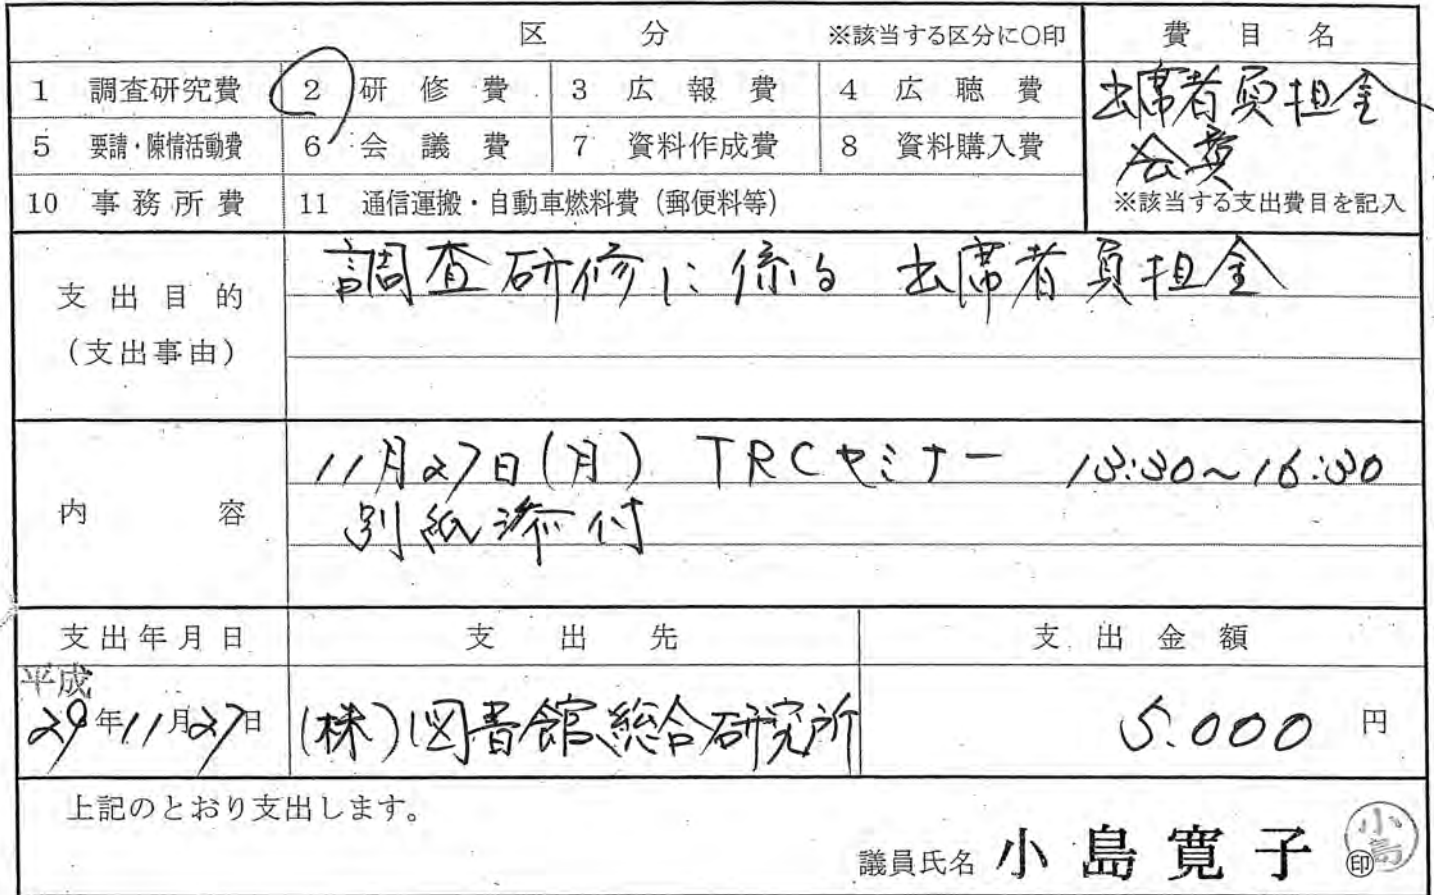 区 分 ※該当する区分に○印 費 目 名
1 調査研究費 2 研 修 費 3 広 報 費 4 広 聴 費 出席者負担金
5 要請・陳情活動費 6 会 議 費 7 資料作成費 8 資料購入費 会費
10 事 務 所 費 11 通信運搬・自動車燃料費（郵便料等） ※該当する支出費目を記入
支 出 目 的 調査研修に係る 出席者負担金
（支出事由）
内 容 11月27日(月) TRCセミナー 13:30~16:30
別紙添付
支出年月日 支 出 先 支 出 金 額
平成
29年11月27日 (株)図書館総合研究所 5.000 円
上記のとおり支出します。
議員氏名 小 島 寛 子 ㊞ 小島